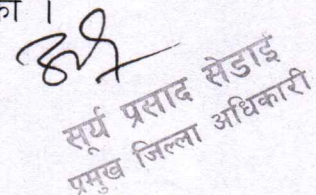 का ।
सूर्य प्रसाद सेडाई
प्रमुख जिल्ला अधिकारी